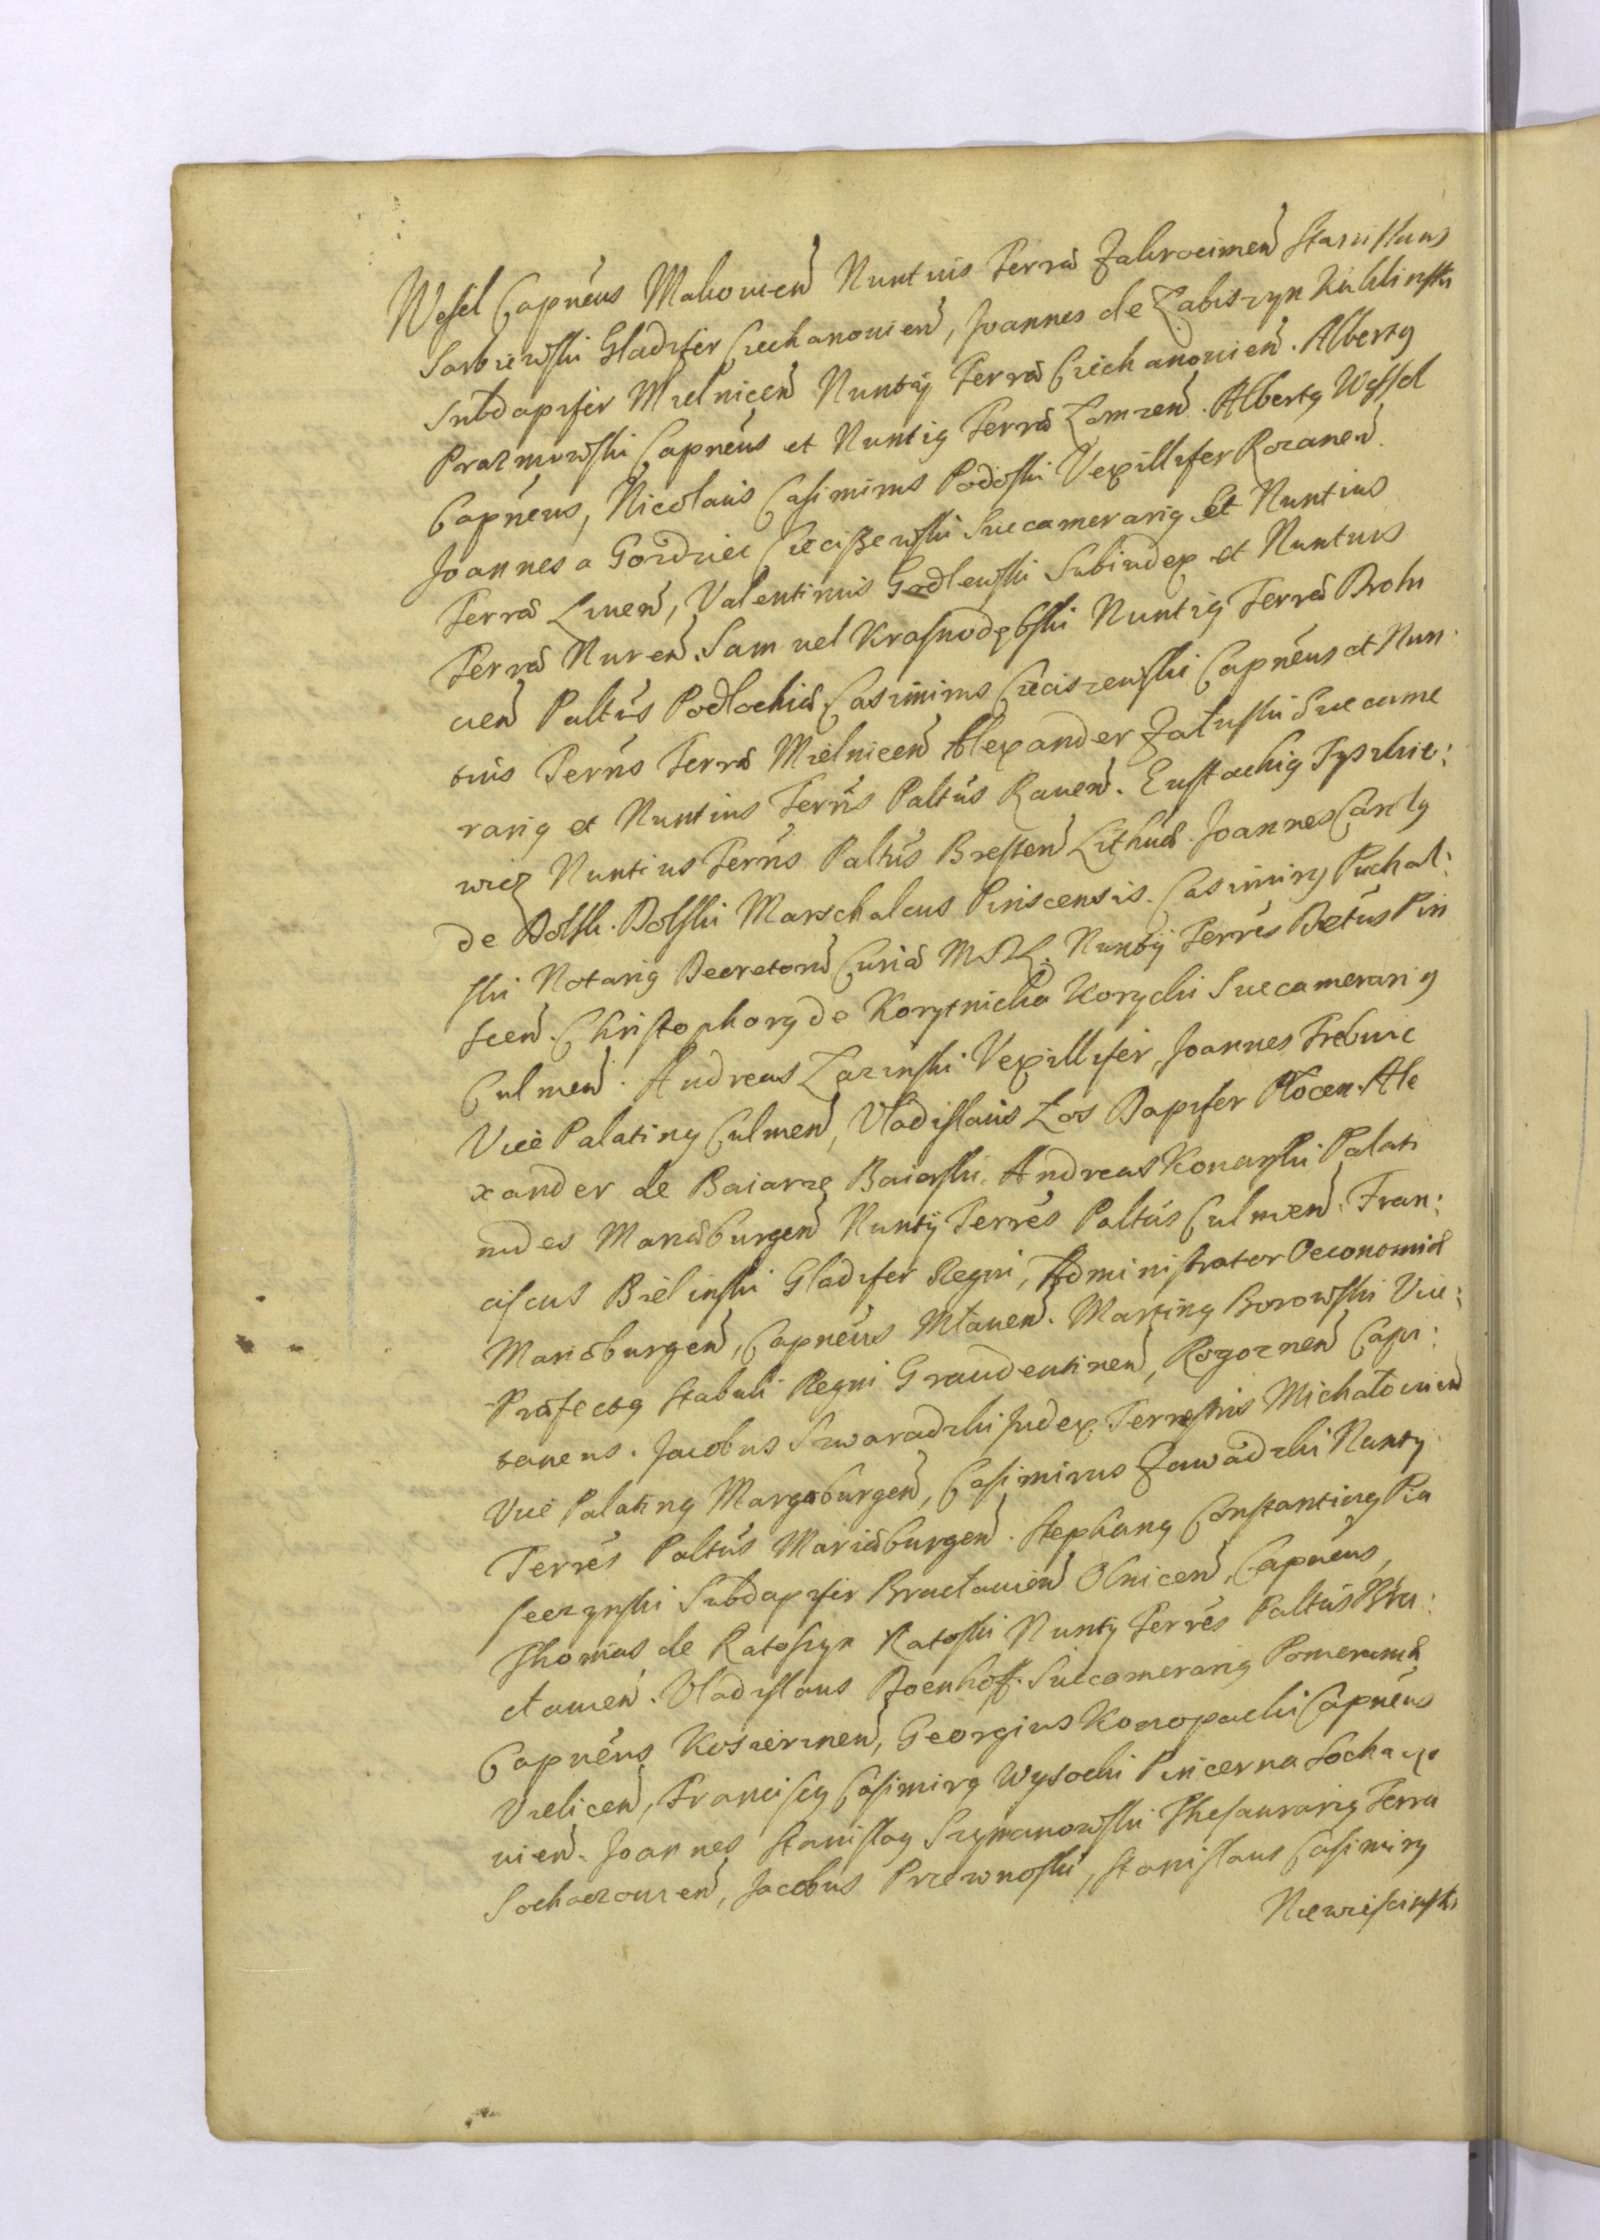 Wessel Capneus Makovien Nuntius Terræ Zakrocimen Stanislaus
Sarbiewski Gladifer Ciechanovien, Joannes de Łabiszyn
Subdapifer Mielnicen Nuntij Terræ Ciechanovien. Albertg
Prazmowski Capneus et Nuntig Terræ Łomzen. Albertg Wessel
Capneus, Nicolaus Casimirus Podoski Vexillifer Rozanen.
Joannes a Cieciszewski Succamerarig et Nuntius
Terræ Liven, Valentinus Godlewski Subiudex et Nuntius
Terræ Nuren. Samuel Krasnodębski Nuntig Terræ Drohi
cien Paltûs Podlachiæ Casimirus Cieciszewski Capneus et Nun
tius Terris Terræ Mielnicen Alexander Załuski Succame
rarig et Nuntius Terris Paltûs Raven. Eustachig Tyszkie:
wicz Nuntius Terris Paltûs Bresten Lithuæ. Joannes Carolg
de Dolsk. Dolski Marschalcus Pinscensis. Casimirg Puchal:
ski Notarig Decretorû Curiæ MDL. Nuntij Terres Dstûs Pin
scen. Christophorg de Korytnicka Korycki Succamerarig
Culmen. Andreas Łazinski Vexillifer, Joannes Trebnic
Vice Palating Culmen, Vladislaus Łos Dapifer Płocen. Ale
xander de Baiarze Baierski. Andreas Konarski Palati
nides Mariæburgen Nuntij Terres Paltûs Culmen. Fran:
ciscus Bielinski Gladifer Regni, Administrator Oeconomiæ
Mariæburgen, Capneus Mławen. Marting Borowski Vice:
Præfectg Stabuli Regni Graudentinen, Rogoznen Capi:
taneus. Jacobus Szwaradzki Judex Terrestris Michałovien
Vice Palating Margæburgen, Casimirus Zawadzki Nuntij
Terres Paltûs Mariæburgen. Stephang Constanting Pia
seczynski Subdapifer Bracłavien Olnicen, Capneus,
Thomas de Ratoszyn Ratoski Nuntij Terres Paltûs Bra:
cłavien. Vladislaus Doenhoff. Succamerarig Pomeraniæ
Capneus Koscierznen, Georgius Konopacki Capneus
Vielicen, Franciscg Casimirg Wysocki Pincerna Sochaczo
vien. Joannes Stanislag Szymanowski Thesaurarig Terræ
Sochaczovien, Jacobus, Stanislaus Casimirg
Niewiescinski